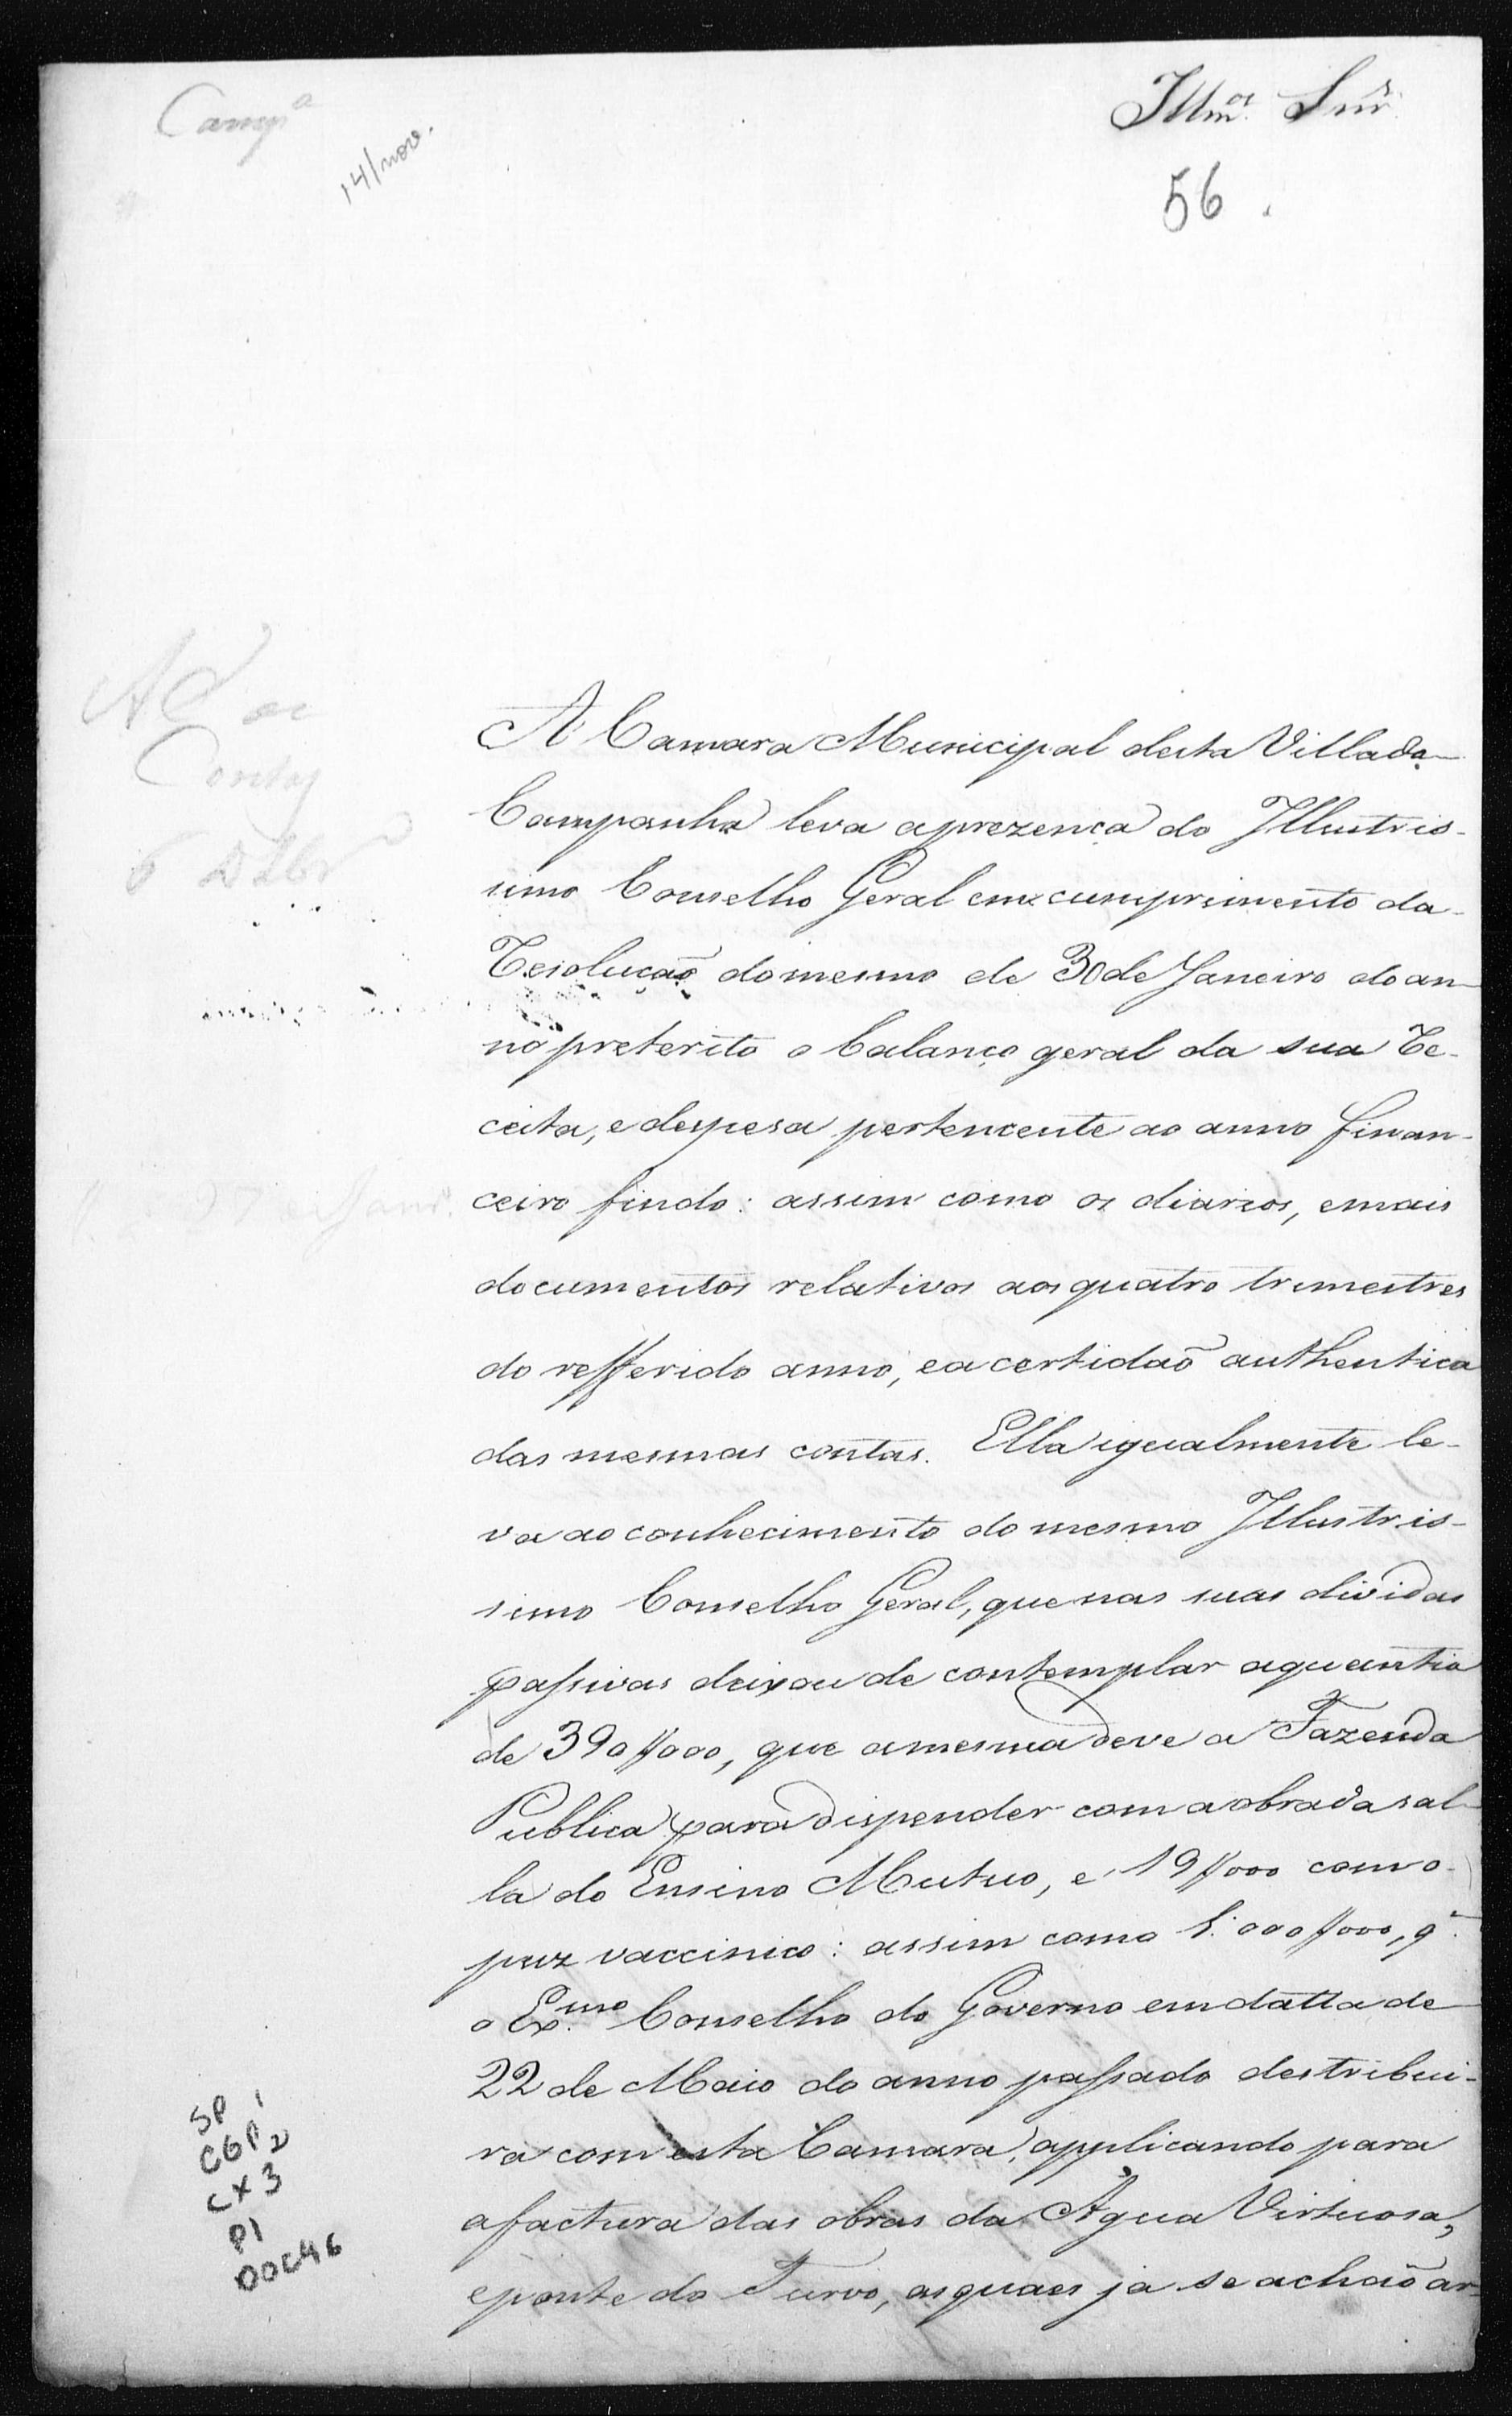 Camp.ª
14/nov.
Illm.os Snr.s
56.
A Camara Municipal desta Villa da
Campanha leva aprezença do Illustris-
simo Conselho Geral em cumprimento da
Resolução do mesmo de 30 de Janeiro do an-
no preterito o balanço geral da sua Re-
ceita, e despesa pertencente ao anno finan-
ceiro findo: assim como os diarios, emais
documentos relativos aos quatro trimestres
do refferido anno, ea certidaõ authentica
das mesmas contas. Ella igualmente le-
va ao conhecimento do mesmo Illustris-
simo Conselho Geral, que nas suas dividas
passivas deixou de contemplar aquantia
de 390$000, que amesma deve a Fazenda
Publica para dispender com aobra da sal-
la do Ensino Mutuo, e 19$000 com o
puz vaccinico: assim como 1:000$000, q.
o Ex.mo Conselho do Governo em datta de
22 de Maio do anno passado destribui-
ra com esta Camara, applicando para
afactura das obras da Agua Virtuosa,
eponte do Turvo, as quaes ja se achaõ ar-
A C de
Contas
6 Dzbr
27 Janr.
SP 1
CGP 2
CX 3
P1
DOC 46